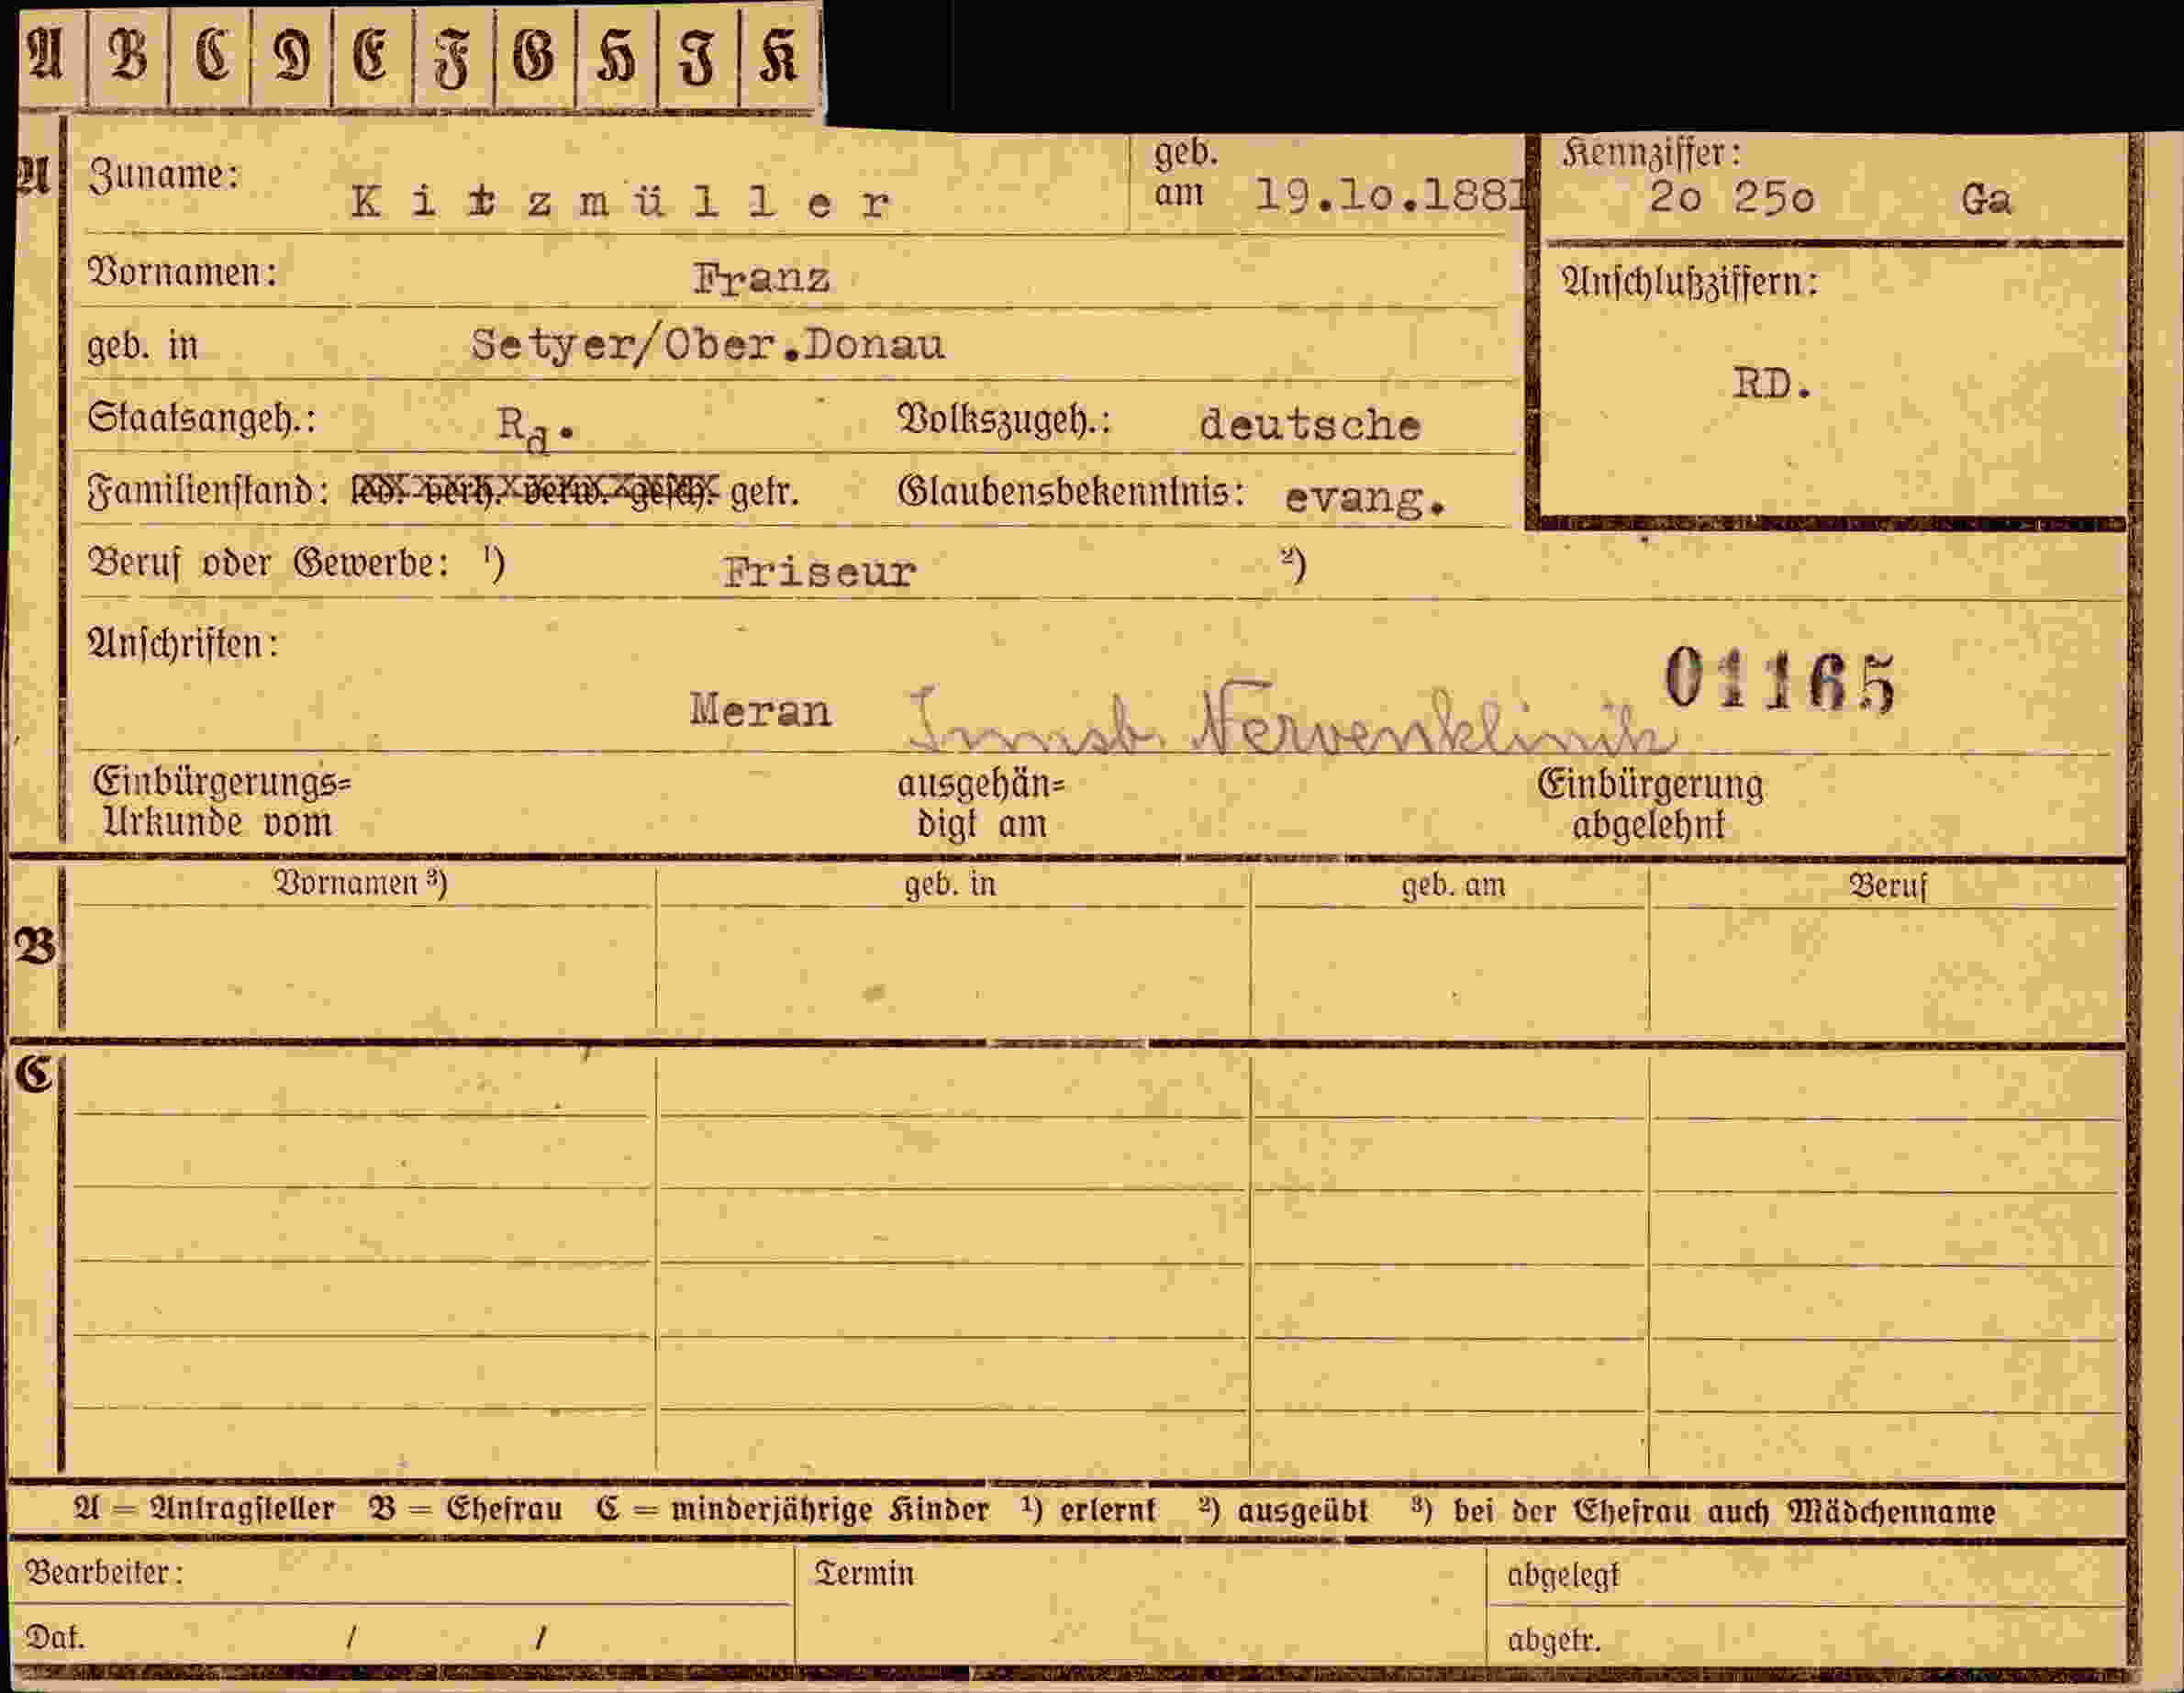 A B C D E F G H I K
A
Zuname: Kitzmüller geb. am 19.10.1881 Kennziffer: 20 250 Ga
Vornamen: Franz
Anschlußziffern:
geb. in Setyer/Ober.Donau
RD.
Staatsangeh.: Rd. Volkszugeh.: deutsche
Familienstand: led. verh. verw. gesch. getr. Glaubensbekenntnis: evang.
Beruf oder Gewerbe: ¹) Friseur ²)
Anschriften:
01165
Meran Innsb. Nervenklinik
Einbürgerungs= ausgehän= Einbürgerung
Urkunde vom digt am abgelehnt
Vornamen ³) geb. in geb. am Beruf
B
C
A = Antragsteller B = Ehefrau C = minderjährige Kinder ¹) erlernt ²) ausgeübt ³) bei der Ehefrau auch Mädchenname
Bearbeiter: Termin abgelegt
Dat. / / abgetr.